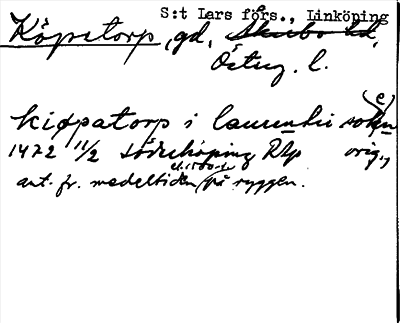 S:t Lars förs., Linköping
Köpetorp, gd, Skubo hd,
Östug. l.
kiøpatorp i laurentii sokn (e)
1472 11/2 Söderköping RAp orig.,
ant. fr. medeltiden el. 1500-t. på ryggen.